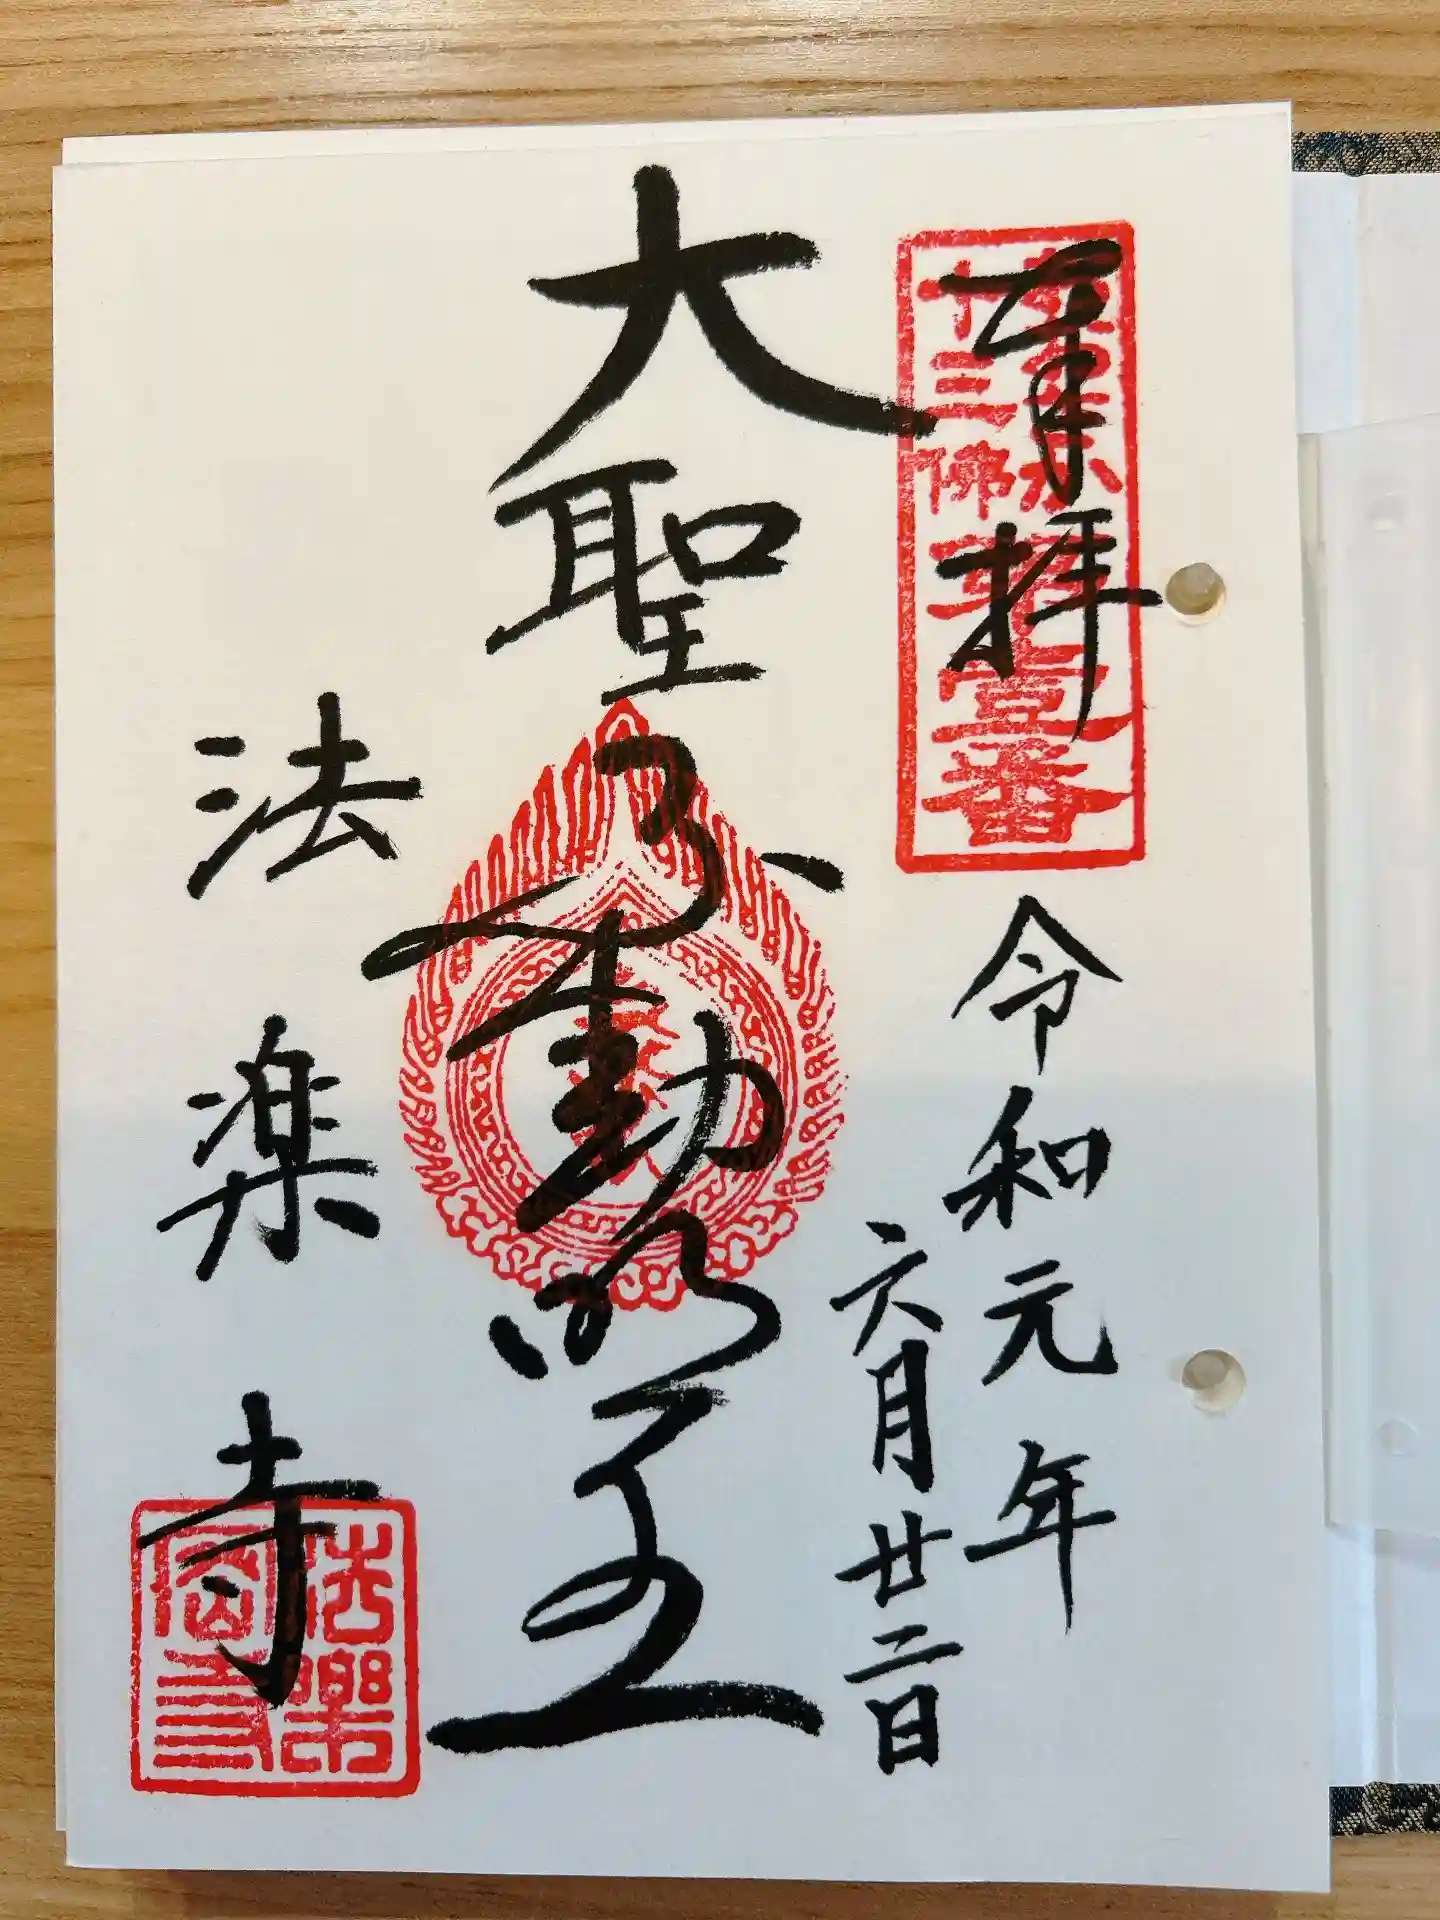 奉拝
十三佛
第壹番
令和元年
六月廿二日
大聖不動明王
法楽寺
法樂